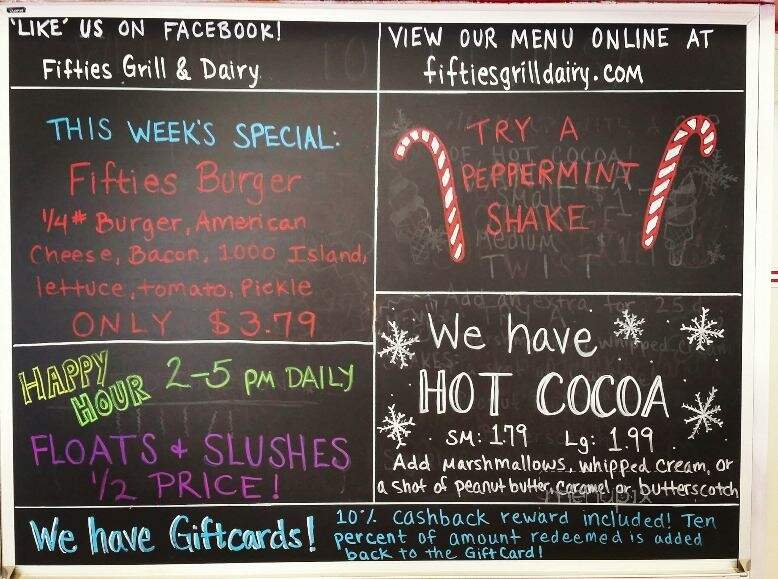 'LIKE' US ON FACEBOOK!
Fifties Grill & Dairy
VIEW OUR MENU ONLINE AT
fiftiesgrilldairy.com
THIS WEEK'S SPECIAL:
Fifties Burger
1/4# Burger, American
Cheese, Bacon, 1000 Island,
lettuce, tomato, Pickle
ONLY $3.79
TRY A
PEPPERMINT
SHAKE
HAPPY
HOUR
2-5 PM DAILY
FLOATS + SLUSHES
1/2 PRICE!
We have
HOT COCOA
SM: 1.79 Lg: 1.99
Add Marshmallows, whipped cream, or
a shot of peanut butter, caramel or butterscotch
We have Giftcards!
10% Cashback reward included! Ten
percent of amount redeemed is added
back to the Gift Card!